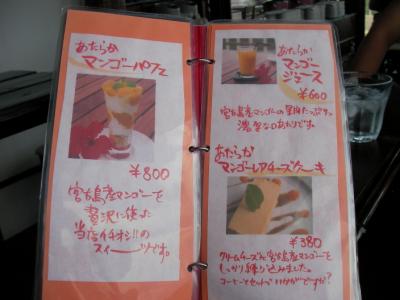 あたらか
マンゴーパフェ
¥800
宮古島産マンゴーを
贅沢に使った
当店イチオシ!!の
スイーツです。
あたらか
マンゴー
ジュース
¥600
宮古島産マンゴーの果肉たっぷりの
濃厚なのあたりです。
あたらか
マンゴーレアチーズケーキ
¥380
クリームチーズに宮古島産マンゴーを
しっかり練り込みました。
コーヒーとセットはいかがですか?